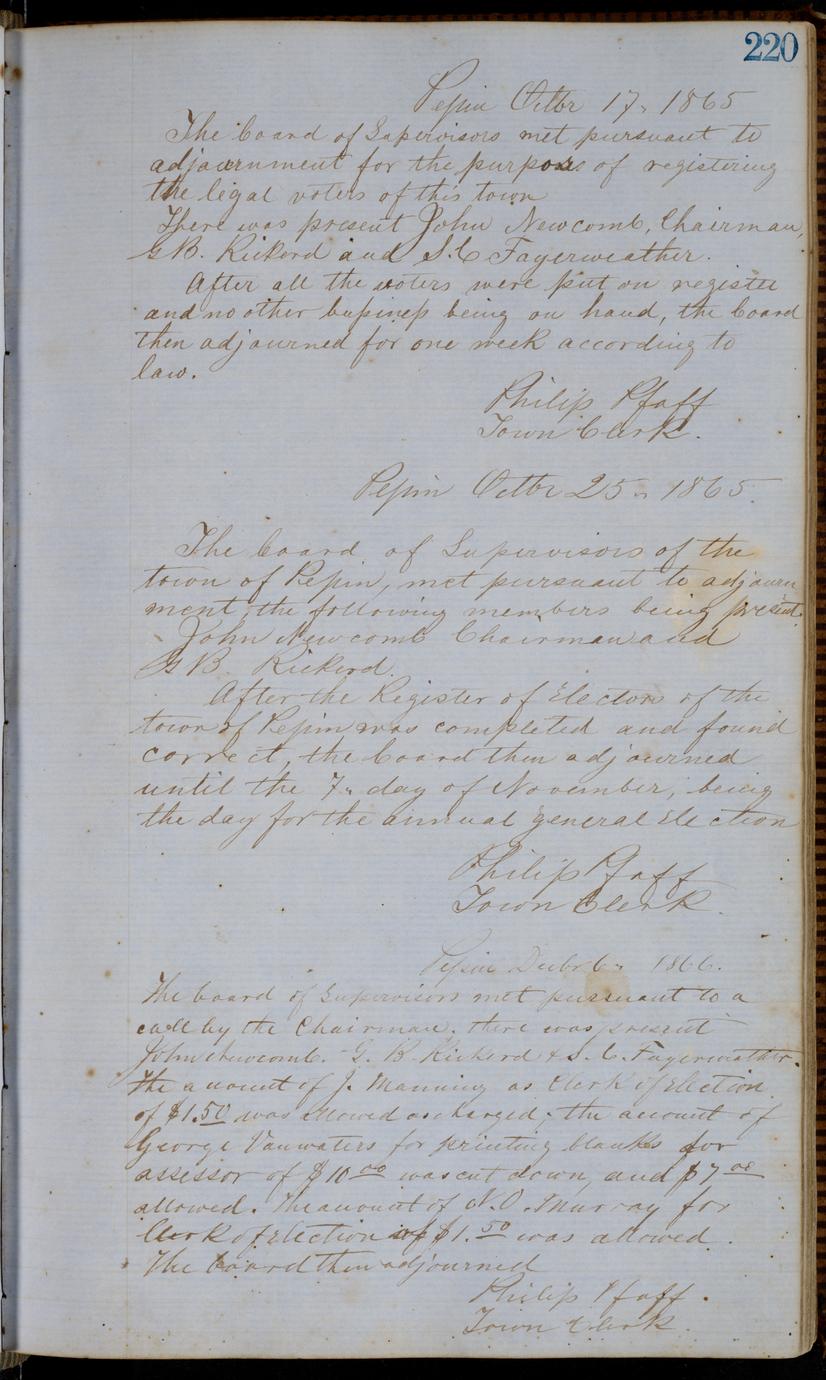 220
Pepin Octbr 17. 1865
The board of Supervisors met pursuant to
adjournment for the purpose of registering
the legal voters of this town
There was present John Newcomb, Chairman,
G B. Rickerd and S. C Fayerweather.
After all the voters were put on register
and no other business being on hand, the board
then adjourned for one week according to
law.
Philip Pfaff
Town Clerk.
Pepin Octbr 25. 1865.
The board of Supervisors of the
town of Pepin, met pursuant to adjourn
ment, the following members being present.
John Newcomb Chairman and
G B. Rickerd.
After the Register of Electors of the
town of Pepin was completed and found
correct, the board then adjourned
until the 7. day of November, being
the day for the annual general Election
Philip Pfaff
Town Clerk.
Pepin Decbr 6. 1866.
The board of Supervisors met pursuant to a
call by the Chairman. there was present
John Newcomb. G. B. Rickerd & S. C. Fayerweather.
The account of J. Manning as Clerk of Election
of $1.50 was allowed as charged; the account of
George Vanwaters for printing blanks for
assessor of $10 00 was cut down, and $7 00
allowed. The account of N. O. Murray for
Clerk of Election of $1. 50 was allowed.
The board then adjourned
Philip Pfaff.
Town Clerk.